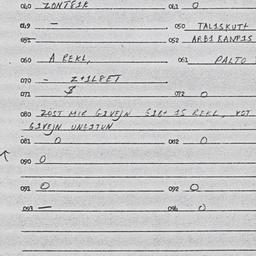 040 ZONTEIR 041 O
049 — 050 TALISKUTT
051 — 052 ARBI KANPIS
060 A REKL, 061 PALTO
070 - Z+ILPET
071 3 072 O
080 ZOST MIR GIVEJN GIR+ IS REKL, VOT
GIVEJN UNGITUN
081 O 082 O
090 O
091 O 092 O
093 — 094 O